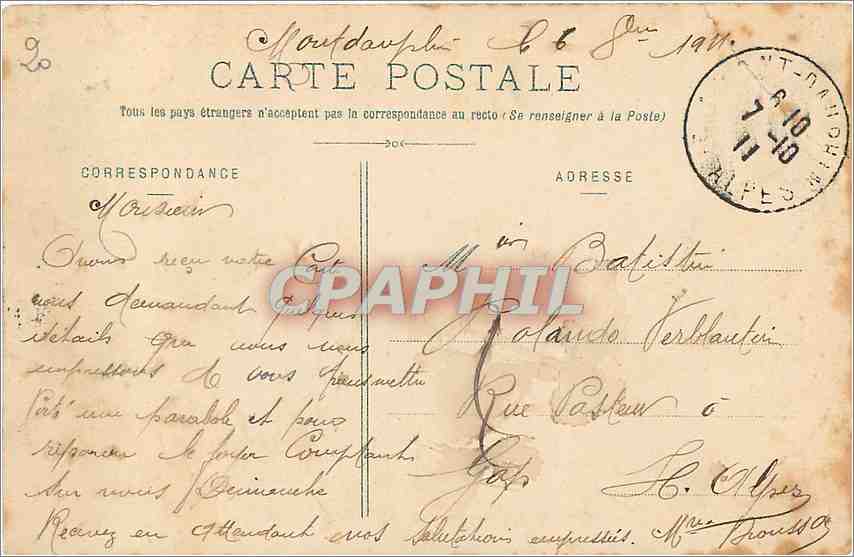 20
Montdauphin le 6 8bre 1911
CARTE POSTALE
Tous les pays étrangers n'acceptent pas la correspondance au recto (Se renseigner à la Poste)
MONT-DAUPHIN
6 10
7 -10
11
ALPES
CORRESPONDANCE
ADRESSE
Monsieur
Avons reçu votre Carte
nous demandant quelques
détails que nous nous
empressons de vous transmettre
une parabole et pour
le foyer Comptant
sur vous Dimanche
Recevez en attendant nos salutations empressées. Mme
Batistin
Rolando
Rue Pasteur à
Gap
H. Alpes
CPAPHIL